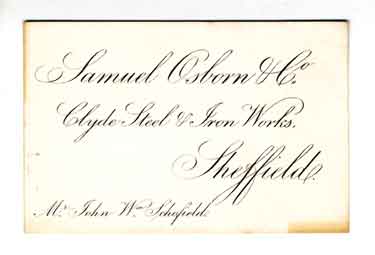 Samuel Osborn & Co
Clyde Steel & Iron Works.
Sheffield.
Mr. John Wm. Schofield.